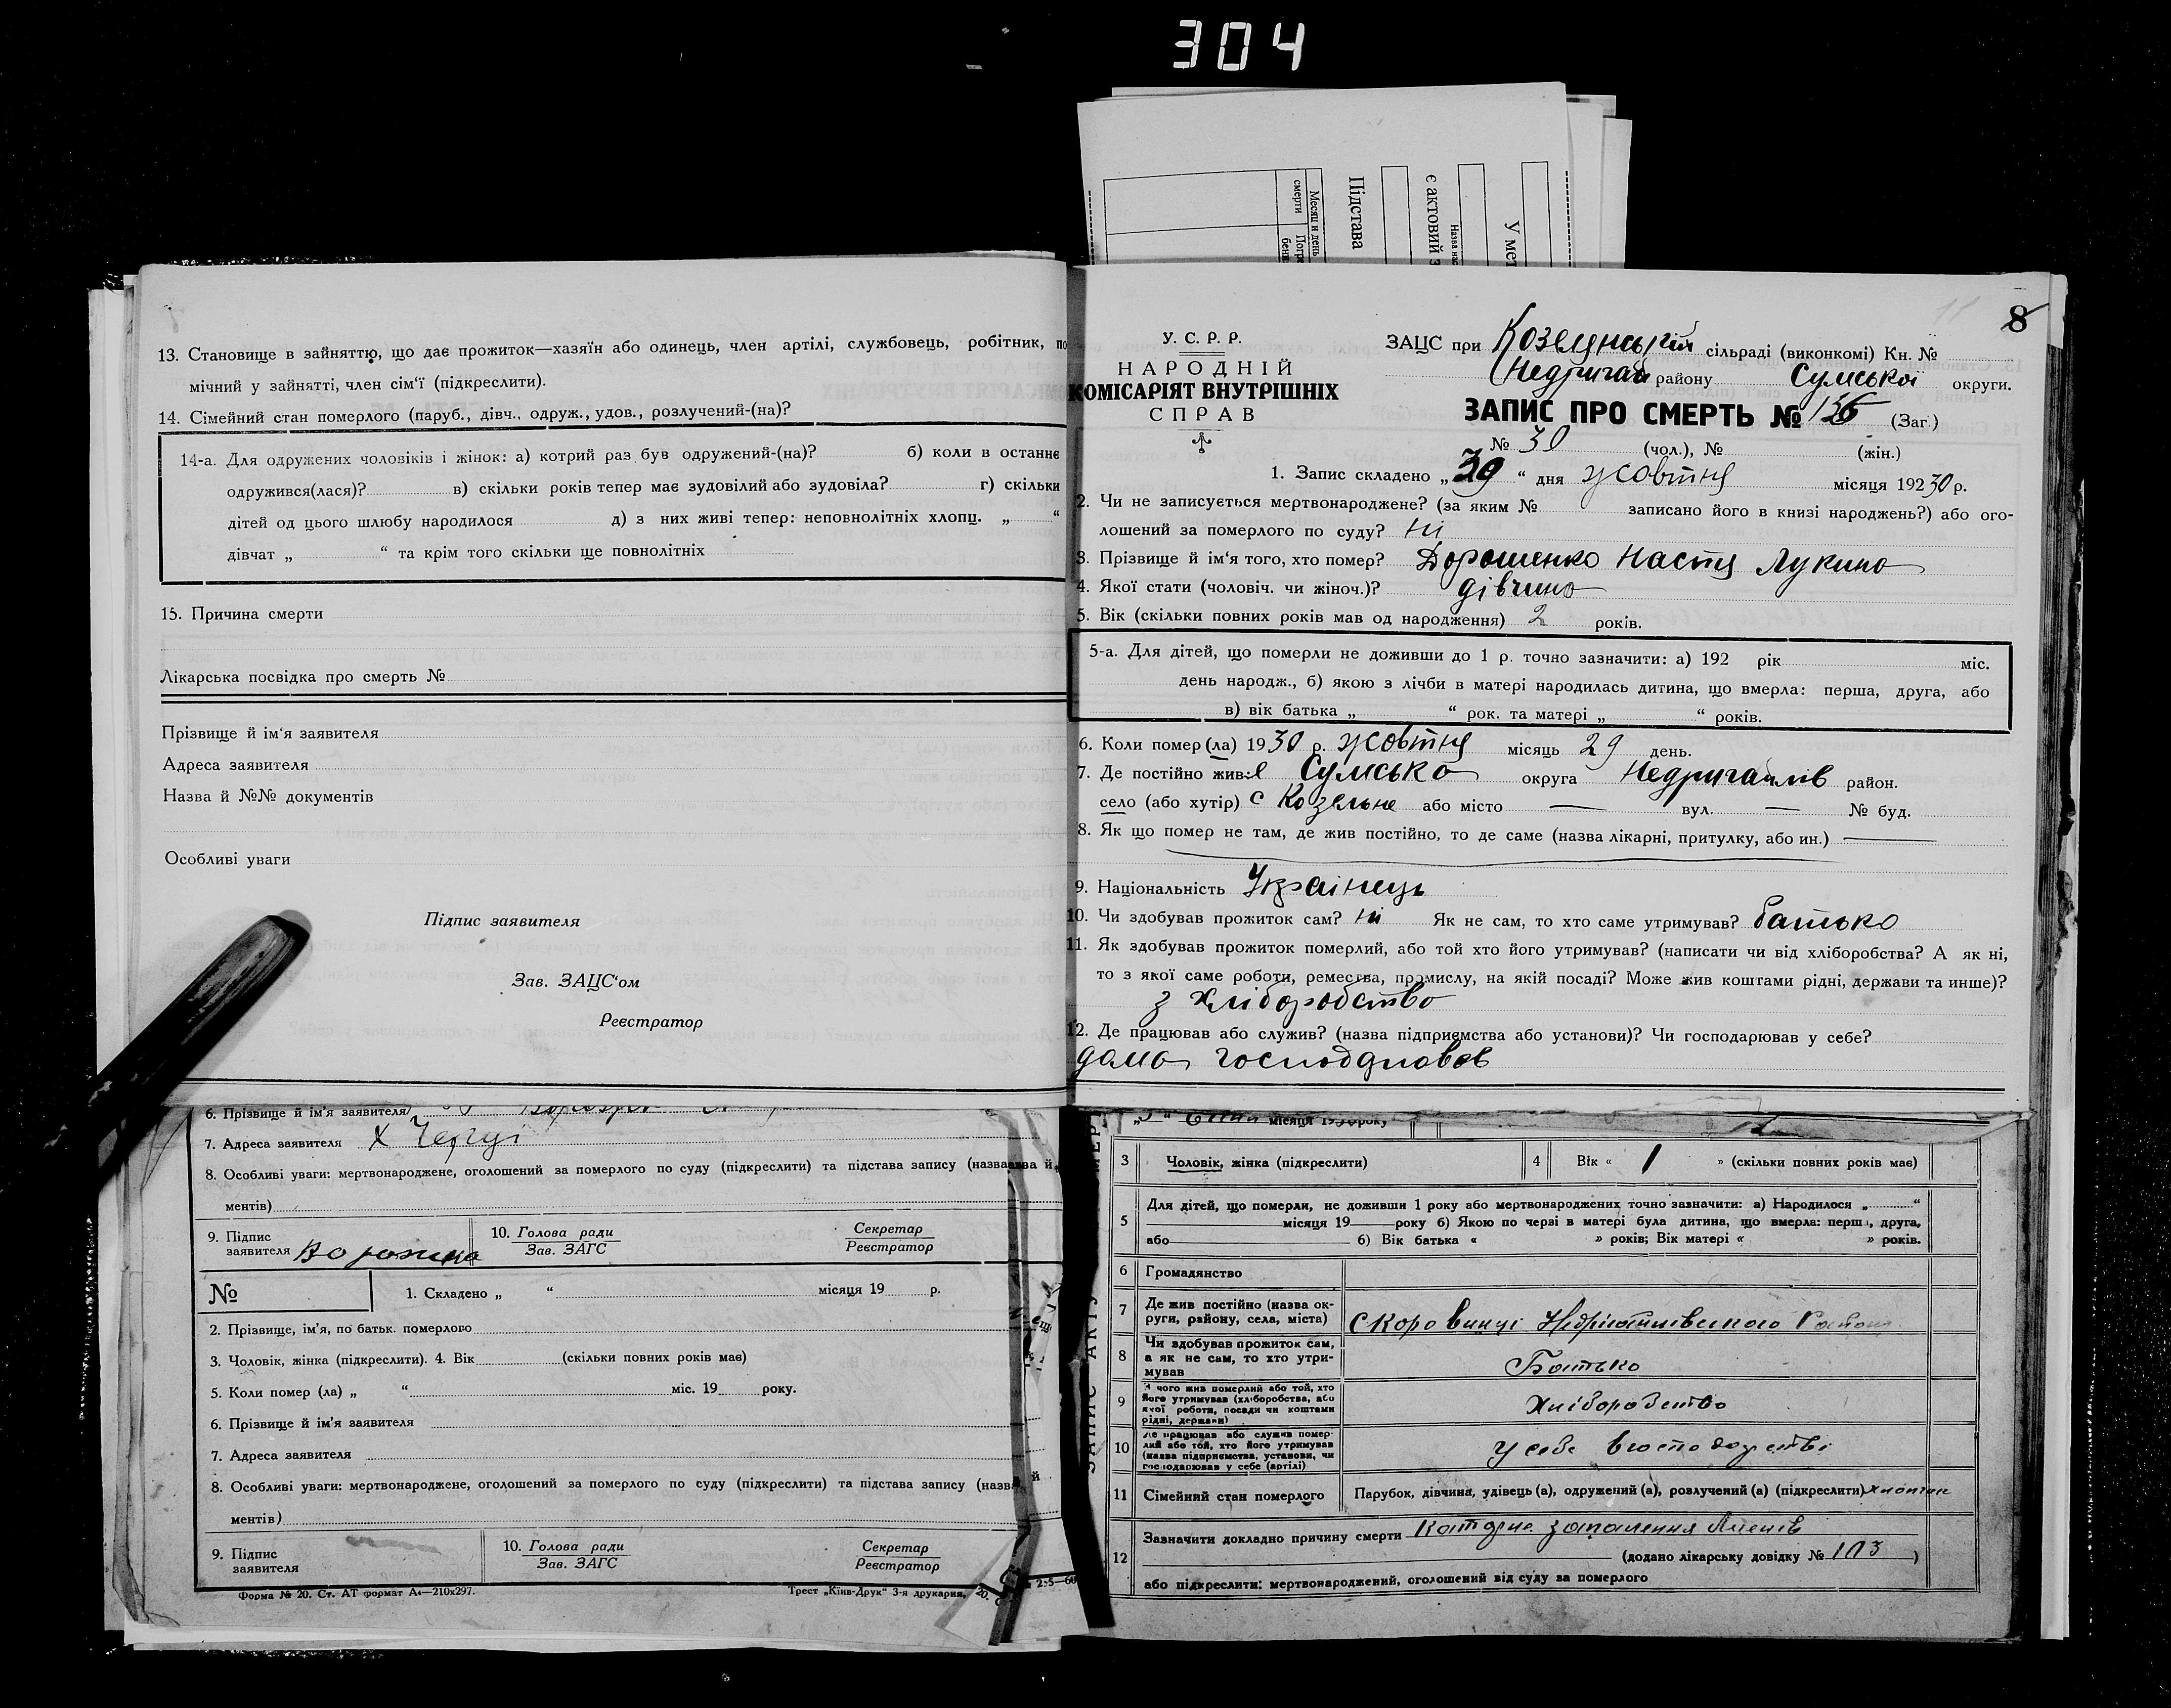 304
Месяц и день
смерти
Підстава
є актовий з
У мет
13. Становище в зайняттю, що дає прожиток—хазяїн або одинець, член артілі, службовець, робітник, по
мічний у зайнятті, член сім‘ї (підкреслити).
14. Сімейний стан померлого (паруб., дівч., одруж., удов., розлучений-(на)?
14-а. Для одружених чоловіків і жінок: а) котрий раз був одружений-(на)? б) коли в останнє
одружився(лася)? в) скільки років тепер має зудовілий або зудовіла? г) скільки
дітей од цього шлюбу народилося д) з них живі тепер: неповнолітніх хлопц. „ “
дівчат „ “ та крім того скільки ще повнолітніх
15. Причина смерти
Лікарська посвідка про смерть №
Прізвище й ім‘я заявителя
Адреса заявителя
Назва й №№ документів
Особливі уваги
Підпис заявителя
Зав. ЗАЦС‘ом
Реєстратор
6. Прізвище й ім‘я заявителя
7. Адреса заявителя
8. Особливі уваги: мертвонароджене, оголошений за померлого по суду (підкреслити) та підстава запису (назва й
ментів)
9. Підпис заявителя
10. Голова ради
Зав. ЗАГС
Секретар
Реєстратор
№
1. Складено „ “ місяця 19 р.
2. Прізвище, ім‘я, по батьк. померлого
3. Чоловік, жінка (підкреслити). 4. Вік (скільки повних років має)
5. Коли помер (ла) „ “ міс. 19 року.
6. Прізвище й ім‘я заявителя
7. Адреса заявителя
8. Особливі уваги: мертвонароджене, оголошений за померлого по суду (підкреслити) та підстава запису (назва й
ментів)
9. Підпис заявителя
10. Голова ради
Зав. ЗАГС
Секретар
Реєстратор
Форма № 20. Ст. АТ формат А4—210х297.
Трест „Київ-Друк“ 3-я друкарня.
8
У. С. Р. Р.
НАРОДНІЙ
КОМІСАРІЯТ ВНУТРІШНІХ
СПРАВ
ЗАЦС при сільраді (виконкомі) Кн. №
району Сумської округи.
ЗАПИС ПРО СМЕРТЬ № 136 (Заг.)
№ 30 (чол.), № (жін.)
1. Запис складено „ 30 “ дня жовтня місяця 1930 р.
2. Чи не записується мертвонароджене? (за яким № записано його в книзі народжень?) або ого-
лошений за померлого по суду? ні
3. Прізвище й ім‘я того, хто помер? Дорошенко Настя Лукина
4. Якої стати (чоловіч. чи жіноч.)? дівчина
5. Вік (скільки повних років мав од народження) 2 років.
5-а. Для дітей, що померли не доживши до 1 р. точно зазначити: а) 192 рік міс.
день народж., б) якою з лічби в матері народилась дитина, що вмерла: перша, друга, або
в) вік батька „ “ рок. та матері „ “ років.
6. Коли помер (ла) 1930 р. жовтня місяць 29 день.
7. Де постійно жив Сумська округа Недригайлів район.
село (або хутір) с Козельне або місто — вул. — № буд.
8. Як що помер не там, де жив постійно, то де саме (назва лікарні, притулку, або ин.) —
9. Національність Українець
10. Чи здобував прожиток сам? ні Як не сам, то хто саме утримував? батько
11. Як здобував прожиток померлий, або той хто його утримував? (написати чи від хліборобства? А як ні,
то з якої саме роботи, ремества, промислу, на якій посаді? Може жив коштами рідні, держави та инше)?
з хліборобство
12. Де працював або служив? (назва підприємства або установи)? Чи господарював у себе?
дома
місяця 1930 року
3 Чоловік, жінка (підкреслити) 4 Вік « 1 » (скільки повних років має)
5 Для дітей, що померли, не доживши 1 року або мертвонароджених точно зазначити: а) Народилося „ “
місяця 19 року б) Якою по черзі в матері була дитина, що вмерла: перша, друга,
або б) Вік батька « » років; Вік матері « » років.
6 Громадянство
7 Де жив постійно (назва ок-
руги, району, села, міста)
8 Чи здобував прожиток сам,
а як не сам, то хто утри-
мував Батько
9 З чого жив померлий або той, хто
його утримував (хліборобства, або
якої роботи, посади чи коштами
рідні, держави) Хліборобство
10 Де працював або служив помер-
лий або той, хто його утримував
(назва підприємства, установи, чи
господарював у себе (артілі) У себе в господарстві
11 Сімейний стан померлого Парубок, дівчина, удівець (а), одружений (а), розлучений (а) (підкреслити) хлопчик
12 Зазначити докладно причину смерти запалення легенів
(додано лікарську довідку № 103 )
або підкреслити: мертвонароджений, оголошений від суду за померлого